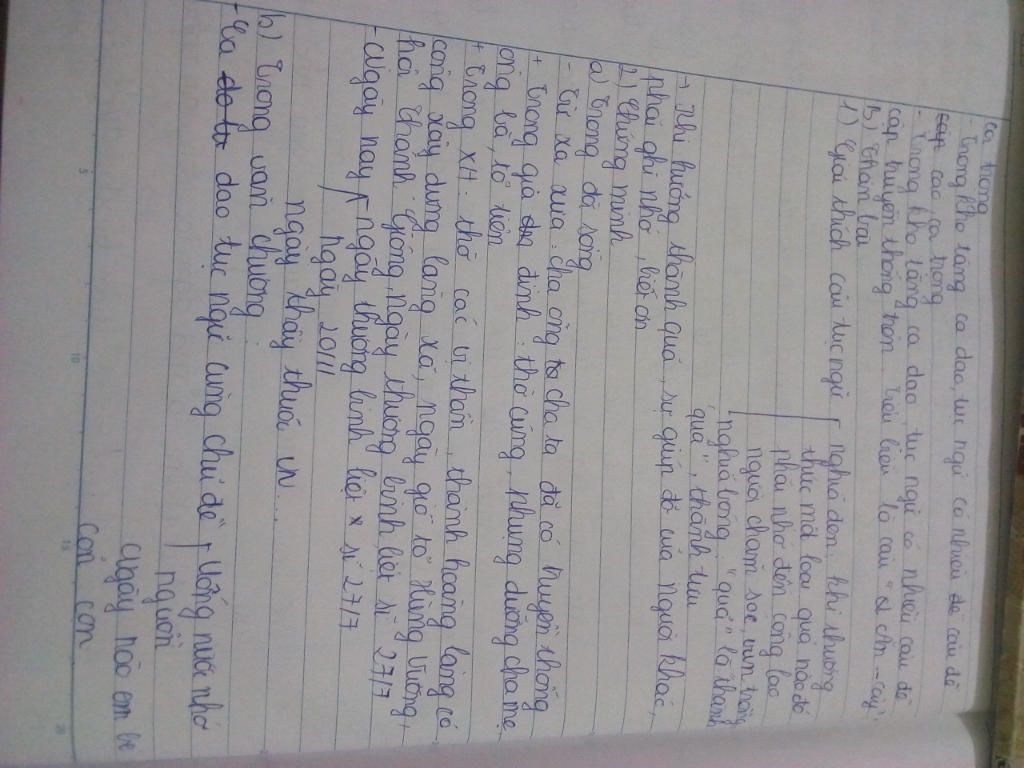 ca trong
- Trong kho tàng ca dao, tục ngữ có nhiều câu đề
cập cao, ca trong
- Trong kho tàng ca dao, tục ngữ có nhiều câu đề
cập truyền thống trên. Tiêu biểu là câu "Ă chn - cây".
B) Thân bài
1) Giải thích câu tục ngữ
nghĩa đen: khi thưởng
thức một loại quả nào đó
phải nhớ đến công lao
người chăm sóc, vun trồng
nghĩa bóng: "quả" là "thành
quả", thành tựu
→ Khi hưởng thành quả, sự giúp đỡ của người khác,
phải ghi nhớ, biết ơn
2) Chứng minh
a) Trong đời sống
- Từ xa xưa: cha ông ta cha ta đã có truyền thống
+ Trong gia đình: thờ cúng, phụng dưỡng cha mẹ,
ông bà, tổ tiên
+ Trong XH: thờ các vị thần, thành hoàng làng có
công xây dựng làng xã, ngày giỗ tổ Hùng Vương,
hội Thánh Gióng, ngày thương binh liệt sĩ 27/7
- Ngày nay
ngày thương binh liệt sĩ 27/7
ngày 20/11
ngày thầy thuốc VN...
b) Trong văn chương
- Ca dao tục ngữ cùng chủ đề
Uống nước nhớ
nguồn
Ngày nào em bé
cỏn con